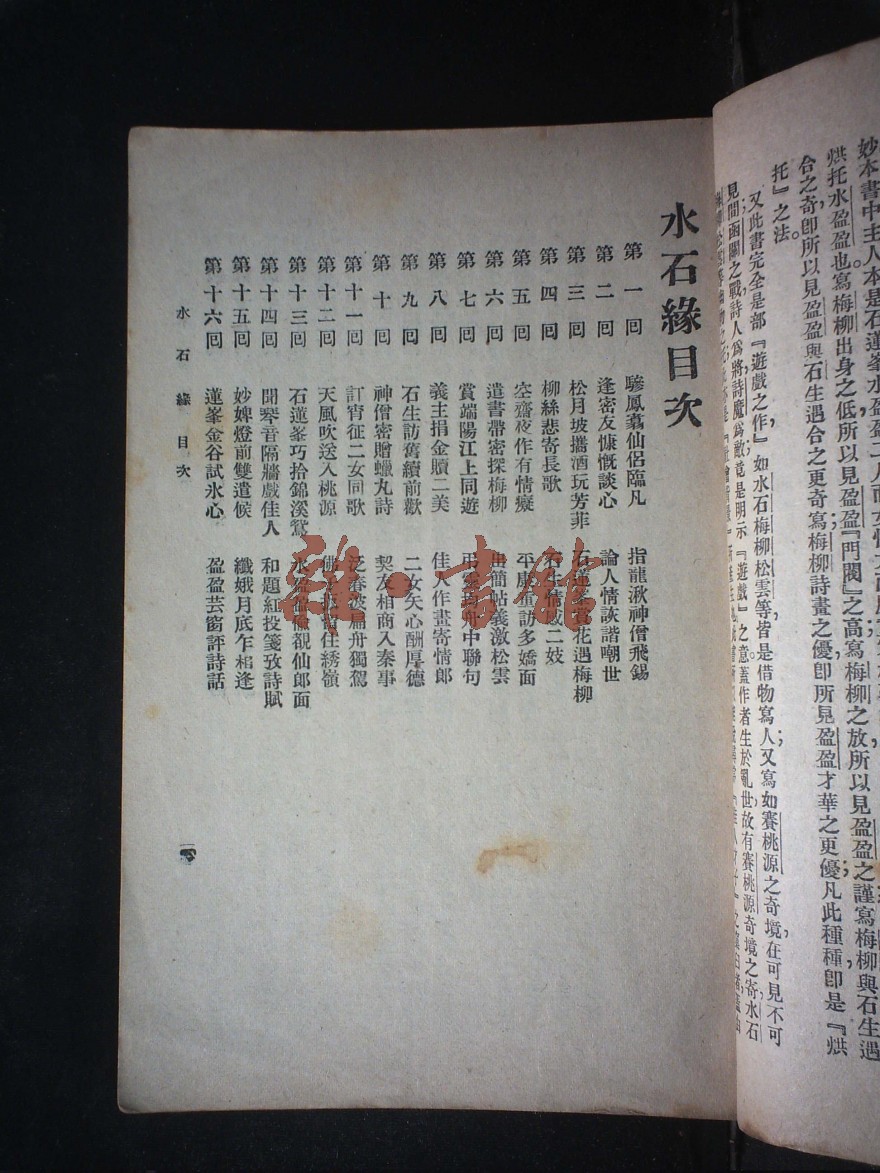 妙本書中主人本是石蓮峯水盈盈二人而
烘托水盈盈也寫梅柳出身之低所以見盈盈『門閥』之高寫梅柳之放所以見盈盈之謹寫梅柳與石生遇
合之奇卽所以見盈盈與石生遇合之更奇寫梅柳詩畫之優卽所見盈盈才華之更優凡此種種卽是『烘
托』之法。
又此書完全是部『遊戲之作』如水石梅柳松雲等皆是借物寫人又寫如賽桃源之奇境在可見不可
見間函關之戰詩人爲將詩魔爲敵竟是明示『遊戲』之意蓋作者生於亂世故有賽桃源奇境之寄水石
水石緣目次
第一回 驂鳳翥仙侶臨凡 指龍湫神僧飛錫
第二回 逢密友慷慨談心 論人情詼諧嘲世
第三回 松月坡攜酒玩芳菲 石蓮峯賞花遇梅柳
第四回 柳絲悲寄長歌 石生情感二妓
第五回 空齋夜作有情癡 平康重訪多嬌面
第六回 遣書帶密探梅柳 出簡帖義激松雲
第七回 賞端陽江上同遊 弔靈均舟中聯句
第八回 義主捐金贖二美 佳人作畫寄情郎
第九回 石生訪舊續前歡 二女矢心酬厚德
第十回 神僧密贈蠟丸詩 契友相商入秦事
第十一回 訂宵征二女同歌 泛春波扁舟獨駕
第十二回 天風吹送入桃源 佛
第十三回 石蓮峯巧拾錦溪鴛 水盈盈 覩仙郎面
第十四回 聞琴音隔牆戲佳人 和題紅投箋攷詩賦
第十五回 妙婢燈前雙遣候 纖娥月底乍相逢
第十六回 蓮峯金谷試氷心 盈盈芸窗評詩話
水石緣目次
一
雜·書館